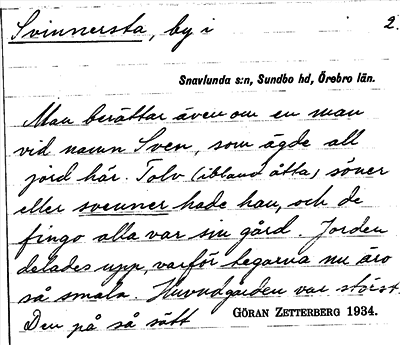 Svinnersta, by i 2.
Snavlunda s:n, Sundbo hd, Örebro län.
Man berättar även om en man
vid namn Sven, som ägde all
jord här. Tolv (ibland åtta) söner
eller svenner hade han, och de
fingo alla var sin gård. Jorden
delades upp, varför tegarna nu äro
så smala. Huvudgården var störst.
Den på så sätt GÖRAN ZETTERBERG 1934.